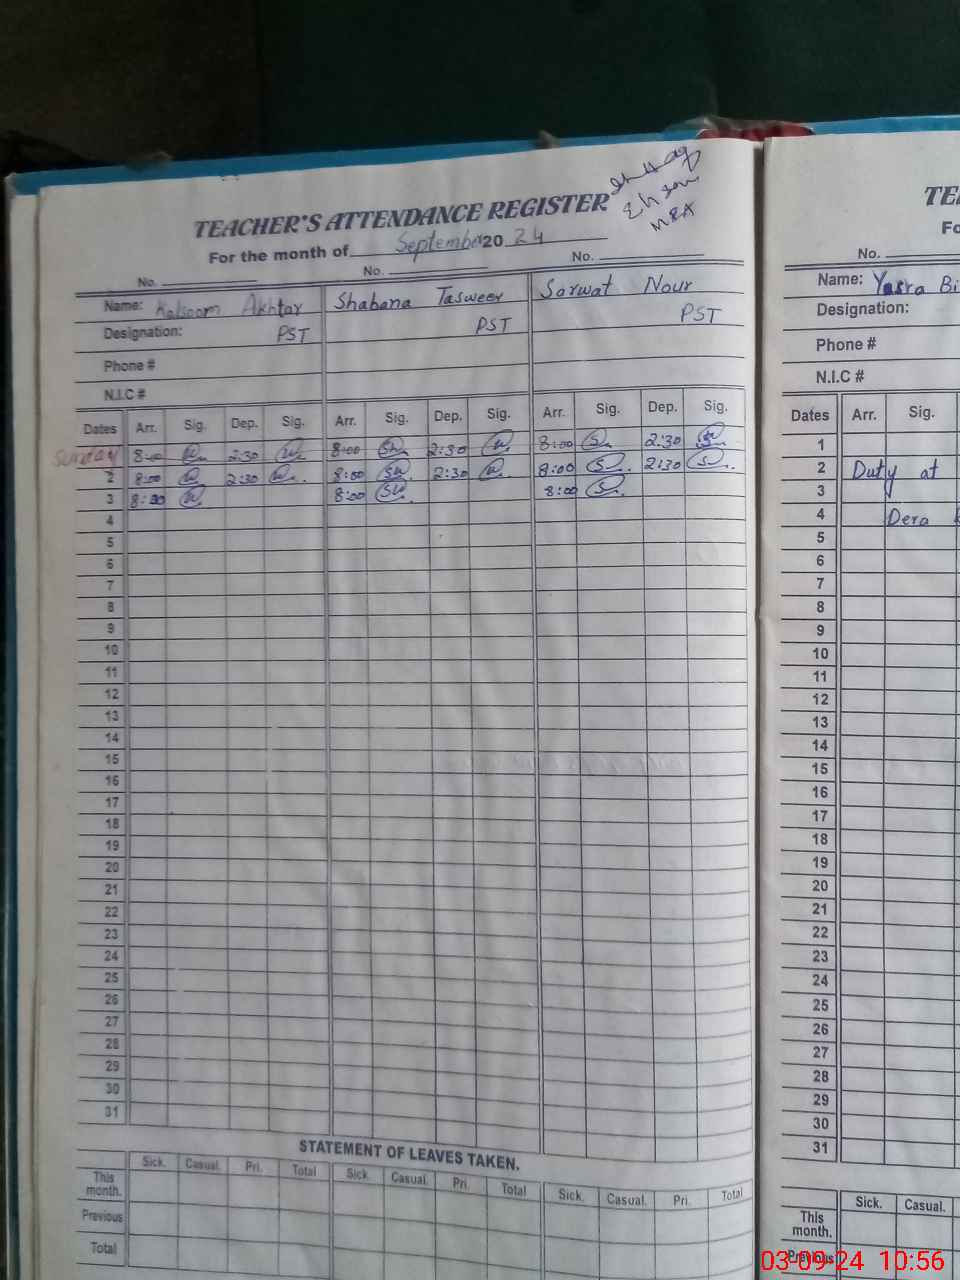 TEACHER'S ATTENDANCE REGISTER
For the month of September 2024
No. No. No.
Name: Kalsoom Akhtar Shabana Tasweer Sarwat Nour
Designation: PST PST PST
Phone #
N.I.C #
Dates Arr. Sig. Dep. Sig. Arr. Sig. Dep. Sig. Arr. Sig. Dep. Sig.
Sunday 8:00 2:30 8:00 2:30 8:00 2:30
2 8:00 2:30 8:00 2:30 8:00 2:30
3 8:00 8:00 8:00
4
5
6
7
8
9
10
11
12
13
14
15
16
17
18
19
20
21
22
23
24
25
26
27
28
29
30
31
STATEMENT OF LEAVES TAKEN.
Sick. Casual. Pri. Total Sick. Casual. Pri. Total Sick. Casual. Pri. Total
This
month.
Previous
Total
No.
Name: Yasra Bi
Designation:
Phone #
N.I.C #
Dates Arr. Sig.
1
2 Duty at
3
4 Dera
5
6
7
8
9
10
11
12
13
14
15
16
17
18
19
20
21
22
23
24
25
26
27
28
29
30
31
Sick. Casual.
This
month.
Previous
03-09-24 10:56